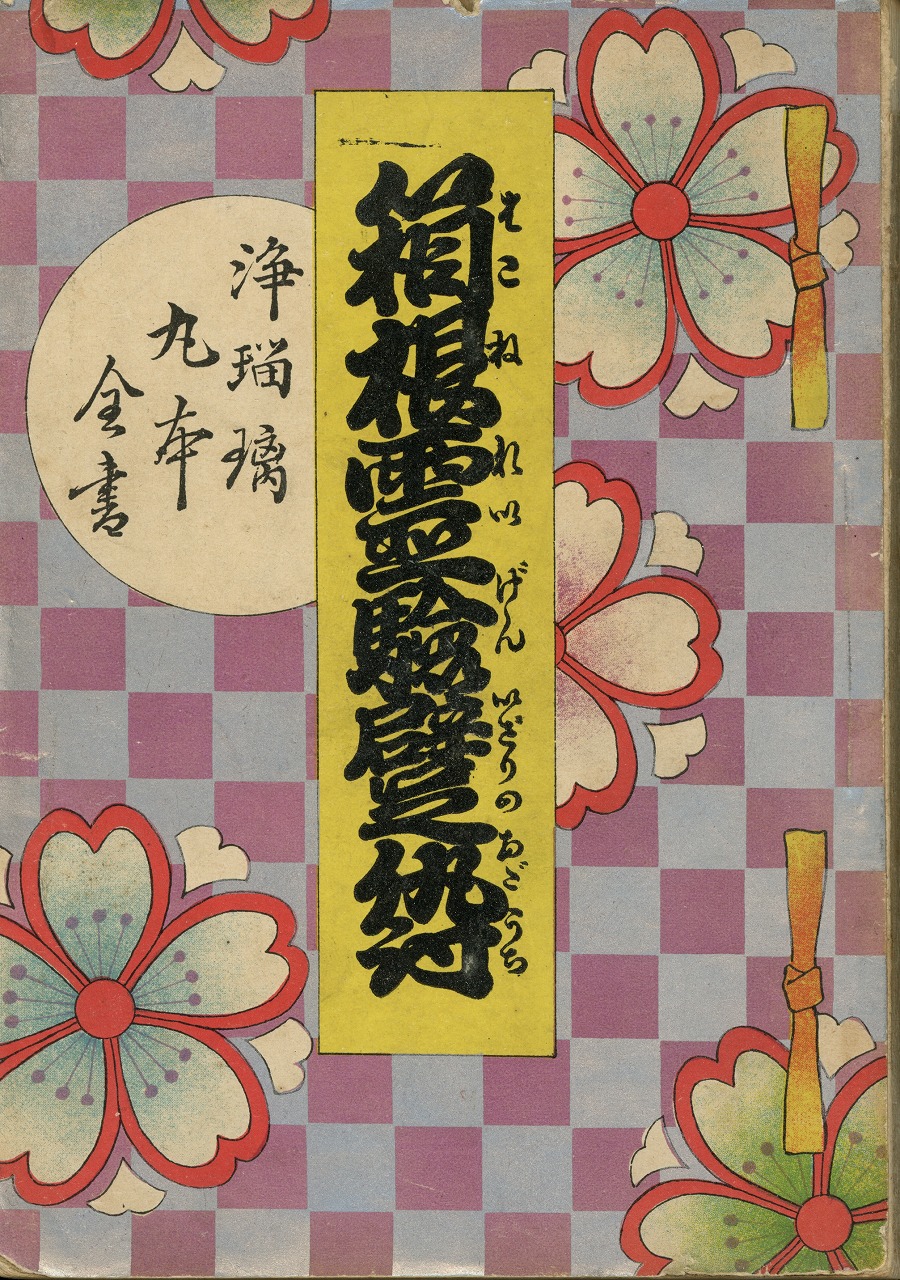 箱根霊験躄仇討
はこねれいげんいざりのあだうち
浄瑠璃
丸本
全書